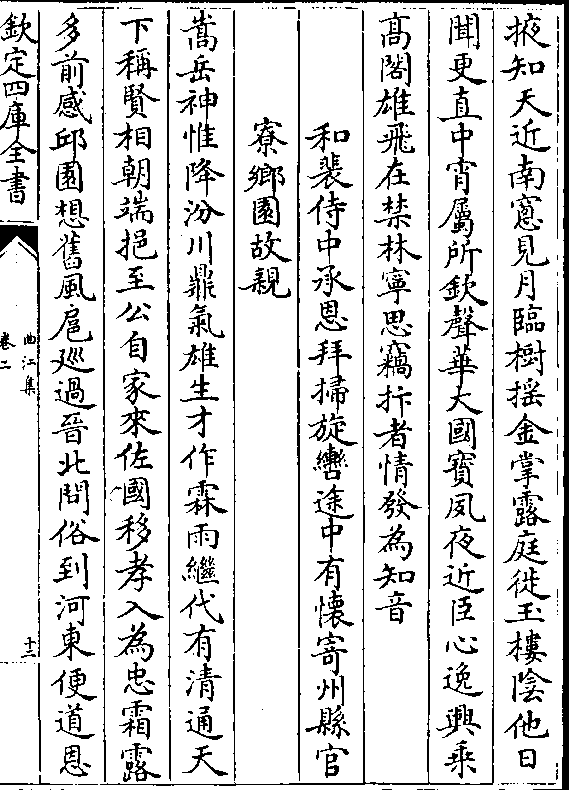 掖知天近南窻見月臨樹揺金掌露庭徙玉樓陰他日
聞更直中宵屬所欽聲華大國寳夙夜近臣心逸興乗
髙閣雄飛在禁林寧思竊抃者情發為知音
和裴侍中承恩拜掃旋轡途中有懐寄州縣官
寮鄉園故親
嵩岳神惟降汾川鼎氣雄生才作霖雨繼代有清通天
下稱賢相朝端挹至公自家來佐國移孝入為忠霜露
多前感邱園想舊風扈廵過晉北問俗到河東便道恩
欽定四庫全書
曲江集
卷二
十三